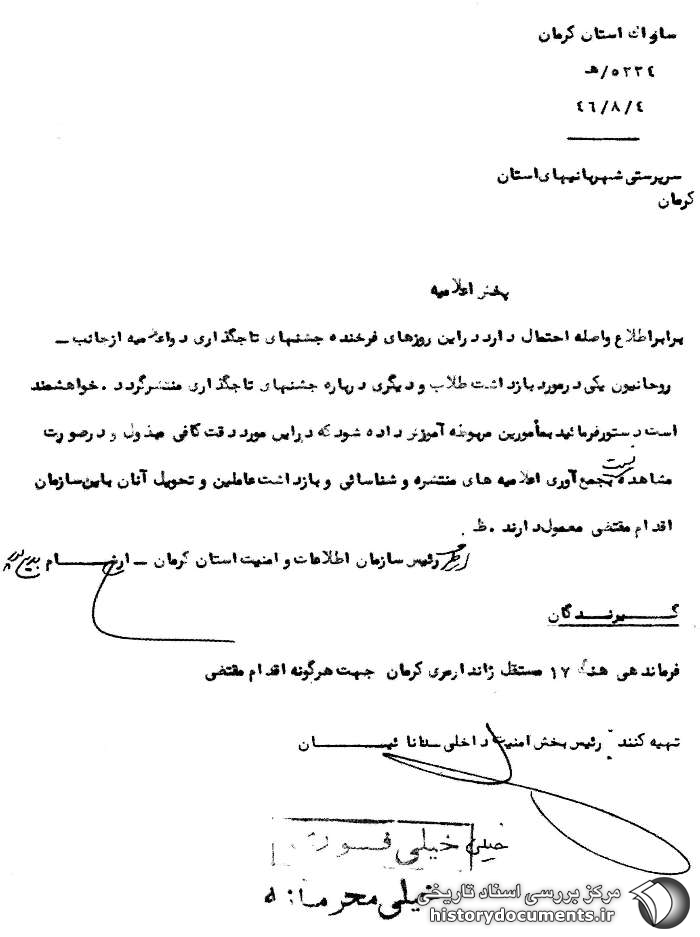 ساواك استان كرمان
۵۲۳٤/هـ
٤٦/٨/٤
سرپرستی شهربانیهای استان
كرمان
پخش اعلامیه
برابر اطلاع واصله احتمال دارد در این روزهای فرخنده جشنهای تاجگذاری دو اعلامیه از جانب ــ
روحانیون یكی در مورد بازداشت طلاب و دیگری درباره جشنهای تاجگذاری منتشر گردد . خواهشمند
است دستور فرمائید بمأمورین مربوطه آموزش داده شود كه در این مورد دقت كافی مبذول و در صورت
مشاهده نسبت بجمع آوری اعلامیه های منتشره و شناسائی و بازداشت عاملین و تحویل آنان باین سازمان
اقدام مقتضی معمول دارند . ظ
رئیس سازمان اطلاعات و امنیت استان كرمان ــ آرام
گیرندگان
فرماندهی هنگ ۱۷ مستقل ژاندارمری كرمان جهت هرگونه اقدام مقتضی
تهیه كننده : رئیس بخش امنیت داخلی ــ
خیلی خیلی فوری
خیلی محرمانه
مركز بررسی اسناد تاریخی
historydocuments.ir